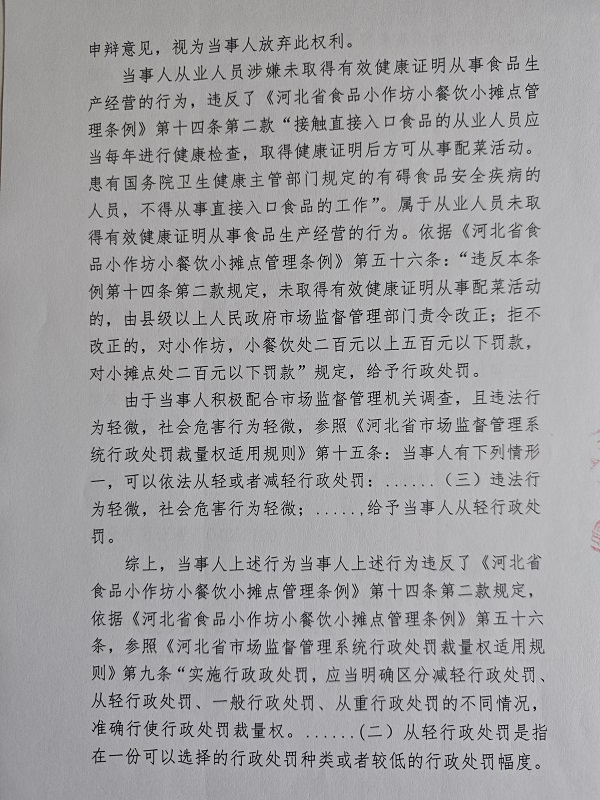 申辩意见，视为当事人放弃此权利。
当事人从业人员涉嫌未取得有效健康证明从事食品生
产经营的行为，违反了《河北省食品小作坊小餐饮小摊点管
理条例》第十四条第二款“接触直接入口食品的从业人员应
当每年进行健康检查，取得健康证明后方可从事配菜活动。
患有国务院卫生健康主管部门规定的有碍食品安全疾病的
人员，不得从事直接入口食品的工作”。属于从业人员未取
得有效健康证明从事食品生产经营的行为。依据《河北省食
品小作坊小餐饮小摊点管理条例》第五十六条：“违反本条
例第十四条第二款规定，未取得有效健康证明从事配菜活动
的，由县级以上人民政府市场监督管理部门责令改正；拒不
改正的，对小作坊，小餐饮处二百元以上五百元以下罚款，
对小摊点处二百元以下罚款”规定，给予行政处罚。
由于当事人积极配合市场监督管理机关调查，且违法行
为轻微，社会危害行为轻微，参照《河北省市场监督管理系
统行政处罚裁量权适用规则》第十五条：当事人有下列情形
一，可以依法从轻或者减轻行政处罚：......（三）违法行
为轻微，社会危害行为轻微；.....,给予当事人从轻行政处
罚。
综上，当事人上述行为当事人上述行为违反了《河北省
食品小作坊小餐饮小摊点管理条例》第十四条第二款规定，
依据《河北省食品小作坊小餐饮小摊点管理条例》第五十六
条，参照《河北省市场监督管理系统行政处罚裁量权适用规
则》第九条“实施行政政处罚，应当明确区分减轻行政处罚、
从轻行政处罚、一般行政处罚、从重行政处罚的不同情况，
准确行使行政处罚裁量权。......(二）从轻行政处罚是指
在一份可以选择的行政处罚种类或者较低的行政处罚幅度。